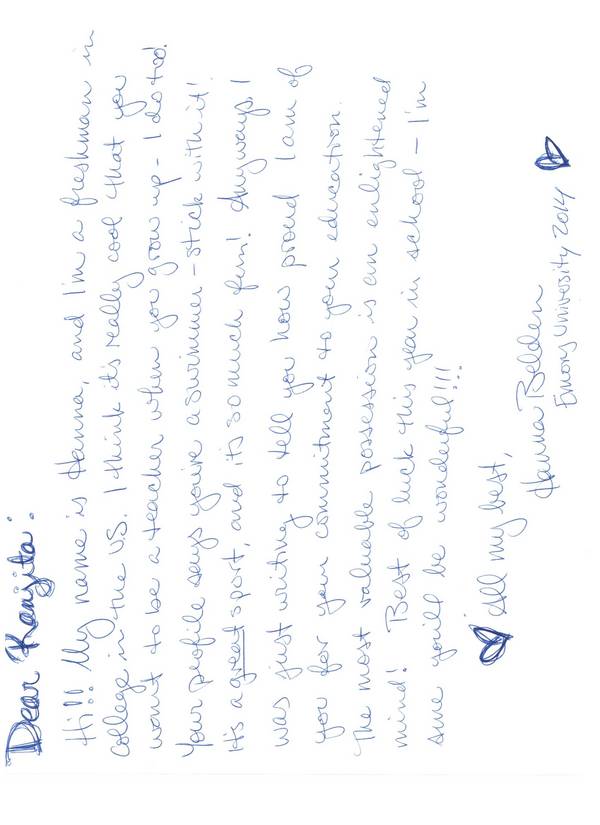 Dear Ranjita:
Hi!! My name is Hanna, and I'm a freshman in
college in the US. I think it's really cool that you
want to be a teacher when you grow up - I do too!
Your profile says you're a swimmer - stick with it!
It's a great sport, and it's so much fun! Anyways, I
was just writing to tell you how proud I am of
you for your commitment to your education.
The most valuable possession is an enlightened
mind! Best of luck this year in school - I'm
sure you'll be wonderful!!!
All my best,
Hanna Belden
Emory University 2014